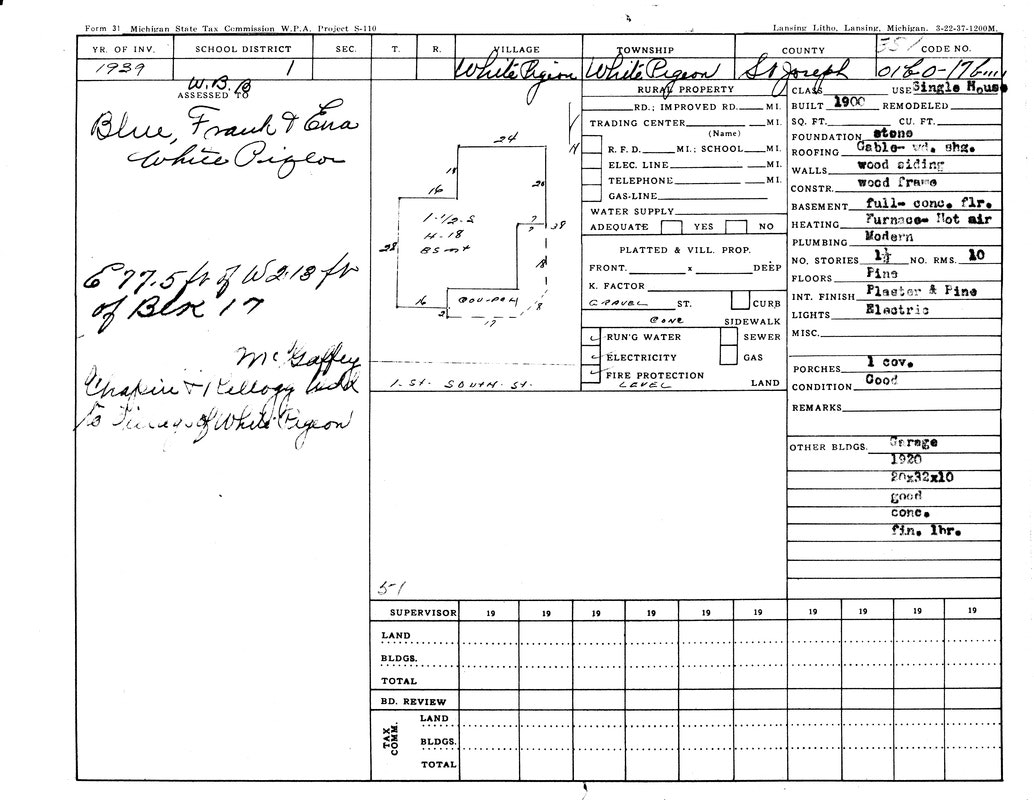 Form 31 Michigan State Tax Commission W.P.A. Project S-110
Lansing Litho, Lansing, Michigan. 3-22-37-1200M.
YR. OF INV. SCHOOL DISTRICT SEC. T. R. VILLAGE TOWNSHIP COUNTY 351 CODE NO.
1939 1 White Pigeon White Pigeon St Joseph 0160-176
W.B.
ASSESSED TO
Blue, Frank & Ena
White Pigeon
E 77.5 ft of W 213 ft
of Blk 17
McGaffey
Chapin & Kellogg add
to Village of White Pigeon
24
18
16
20
1-1/2-S
H-18
BSmt
28
7
7
38
18
16
2
COV-PCH
8
17
N
1-ST. SOUTH-ST.
51
RURAL PROPERTY
RD.; IMPROVED RD. MI.
TRADING CENTER MI.
(Name)
R. F. D. MI.; SCHOOL MI.
ELEC. LINE MI.
TELEPHONE MI.
GAS-LINE
WATER SUPPLY
ADEQUATE YES NO
PLATTED & VILL. PROP.
FRONT. x DEEP
K. FACTOR
GRAVEL ST. CURB
CONC SIDEWALK
RUN'G WATER SEWER
ELECTRICITY GAS
FIRE PROTECTION
LEVEL LAND
CLASS USE Single House
BUILT 1900 REMODELED
SQ. FT. CU. FT.
FOUNDATION stone
ROOFING Gable- wd. shg.
WALLS wood siding
CONSTR. wood frame
BASEMENT full- conc. flr.
HEATING Furnace- Hot air
PLUMBING Modern
NO. STORIES 1½ NO. RMS. 10
FLOORS Pine
INT. FINISH Plaster & Pine
LIGHTS Electric
MISC.
PORCHES 1 cov.
CONDITION Good
REMARKS
OTHER BLDGS. Garage
1920
20x32x10
good
conc.
fin. lbr.
SUPERVISOR 19 19 19 19 19 19 19 19 19 19
LAND
BLDGS.
TOTAL
BD. REVIEW
TAX COMM.
LAND
BLDGS.
TOTAL